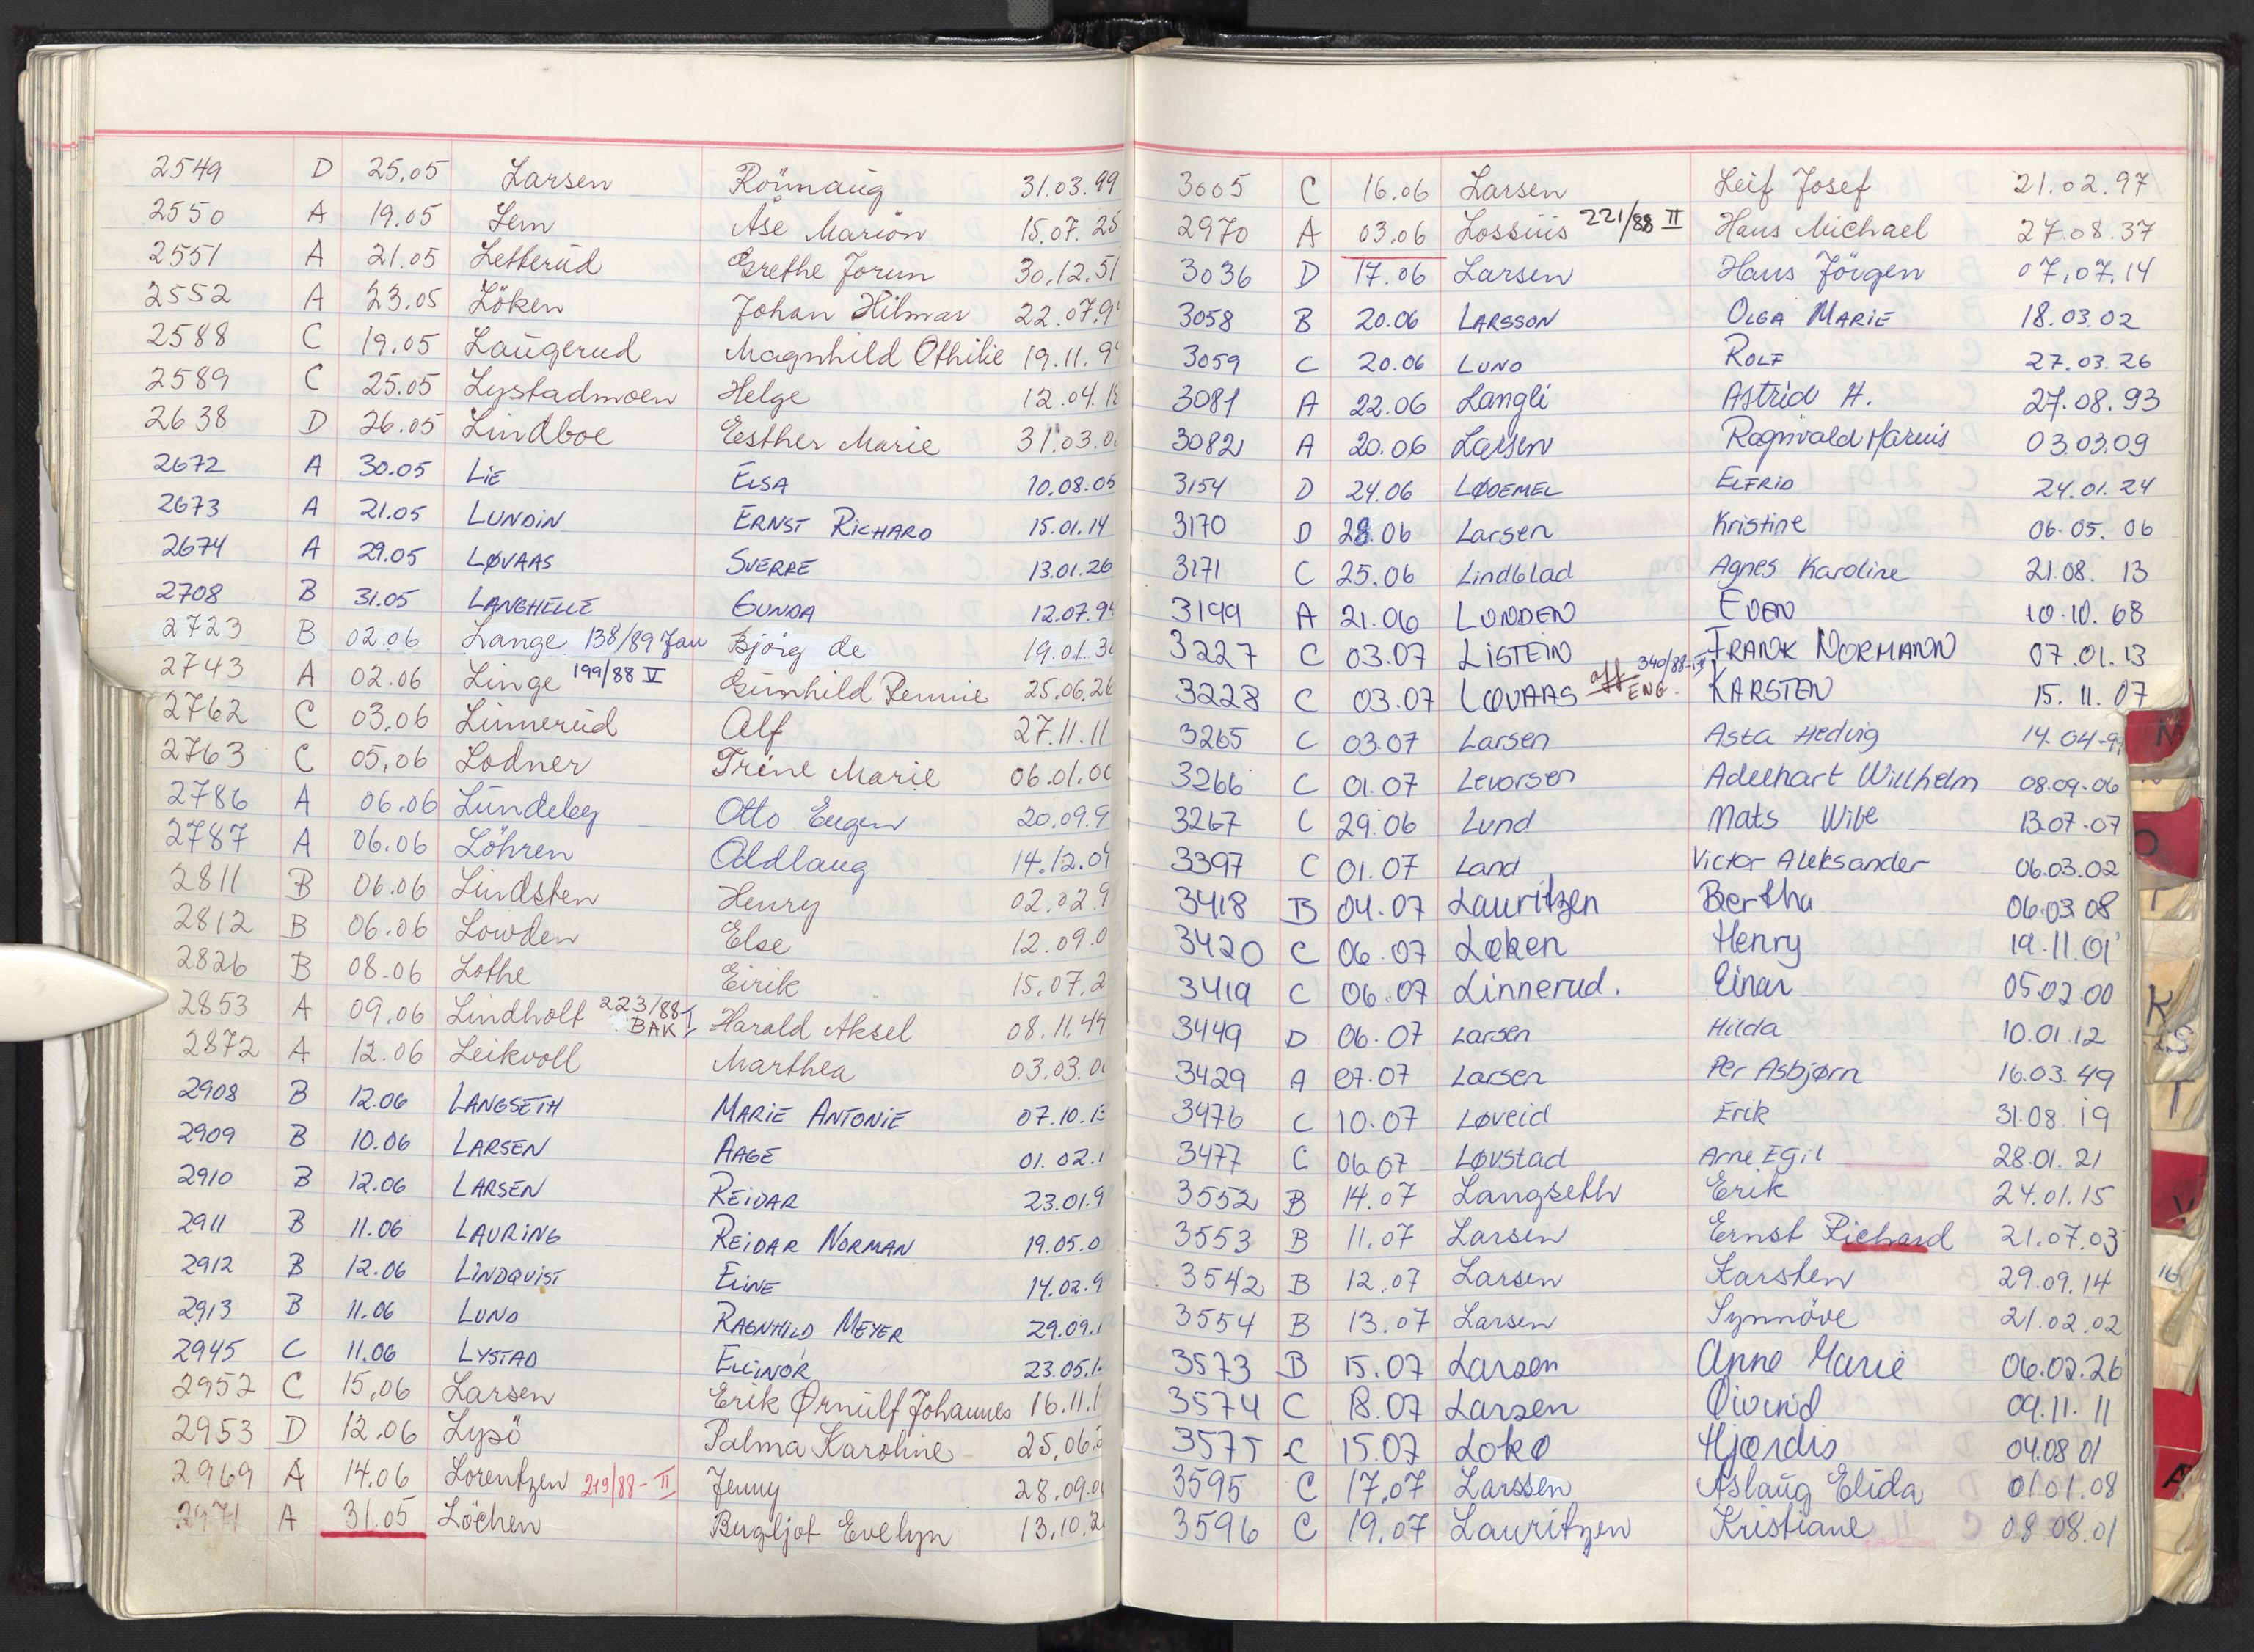 2549 D 25.05 Larsen Rönnaug 31.03.99
2550 A 19.05 Lem Åse Marion 15.07.25
2551 A 21.05 Letterud Grethe Jorun 30.12.51
2552 A 23.05 Löken Johan Hilmar 22.07.9
2588 C 19.05 Laugerud Magnhild Othilie 19.11.9
2589 C 25.05 Lystadmoen Helge 12.04.18
2638 D 26.05 Lindboe Esther Marie 31.03.0
2672 A 30.05 LIE ELSA 10.08.05
2673 A 21.05 LUNDIN ERNST RICHARD 15.01.14
2674 A 29.05 LØVAAS SVERRE 13.01.26
2708 B 31.05 LANGHELLE GUNDA 12.07.9
2723 B 02.06 Lange 138/89 Jan Björg de 19.01.3
2743 A 02.06 Linge 199/88 V Gunhild Pernnie 25.06.26
2762 C 03.06 Linnerud Alf 27.11.11
2763 C 05.06 Lodner Trine Marie 06.01.00
2786 A 06.06 Lundeby Otto Eugen 20.09.9
2787 A 06.06 Löhren Oddlaug 14.12.0
2811 B 06.06 Lindsten Henry 02.02.9
2812 B 06.06 Lowden Else 12.09.0
2826 B 08.06 Lothe Eirik 15.07.2
2853 A 09.06 Lindholt 223/88 I BAK Harald Aksel 08.11.49
2872 A 12.06 Leikvoll Marthea 03.03.0
2908 B 12.06 LANGSETH MARIE ANTONIE 07.10.13
2909 B 10.06 LARSEN AAGE 01.02.1
2910 B 12.06 LARSEN REIDAR 23.01.9
2911 B 11.06 LAURING REIDAR NORMAN 19.05.0
2912 B 12.06 LINDQVIST ELINE 14.02.9
2913 B 11.06 LUND RAGNHILD MEYER 29.09.1
2945 C 11.06 LYSTAD ELLINOR 23.05.1
2952 C 15.06 Larsen Erik Ørnulf Johannes 16.11.1
2953 D 12.06 Lysö Palma Karoline 25.06.2
2969 A 14.06 Lorentzen 219/88-II Jenny 28.09.0
2971 A 31.05 Löchen Bergljot Evelyn 13.10.2
3005 C 16.06 Larsen Leif Josef 21.02.97
2970 A 03.06 Lossius 221/88 II Hans Michael 27.08.37
3036 D 17.06 Larsen Hans Jörgen 07.07.14
3058 B 20.06 LARSSON OLGA MARIE 18.03.02
3059 C 20.06 LUND ROLF 27.03.26
3081 A 22.06 Langli Astrid H. 27.08.93
3082 A 20.06 Larsen Ragnvald Marius 03.03.09
3154 D 24.06 LØDEMEL ELFRID 24.01.24
3170 D 28.06 Larsen Kristine 06.05.06
3171 C 25.06 Lindblad Agnes Karoline 21.08.13
3199 A 21.06 LUNDEN EVEN 10.10.68
3227 C 03.07 LISTEIN FRANK NORMANN 07.01.13
3228 C 03.07 LØVAAS ENG. 340/88 KARSTEN 15.11.07
3265 C 03.07 Larsen Asta Hedvig 14.04-9
3266 C 01.07 Levorsen Adelhart Willhelm 08.09.06
3267 C 29.06 Lund Mats Wibe 13.07.07
3397 C 01.07 Land Victor Aleksander 06.03.02
3418 B 04.07 Lauritzen Bertha 06.03.08
3420 C 06.07 Løken Henry 19.11.01
3419 C 06.07 Linnerud. Einar 05.02.00
3449 D 06.07 Larsen Hilda 10.01.12
3429 A 07.07 Larsen Per Asbjørn 16.03.49
3476 C 10.07 Løveid Erik 31.08.19
3477 C 06.07 Løvstad Arne Egil 28.01.21
3552 B 14.07 Langseth Erik 24.01.15
3553 B 11.07 Larsen Ernst Richard 21.07.03
3542 B 12.07 Larsen Karsten 29.09.14
3554 B 13.07 Larsen Synnöve 21.02.02
3573 B 15.07 Larsen Anne Marie 06.02.26
3574 C 18.07 Larsen Øivind 09.11.11
3575 C 15.07 Løkø Hjørdis 04.08.01
3595 C 17.07 Larssen Aslaug Elida 01.01.08
3596 C 19.07 Lauritzen Kristiane 08.08.01
K
S
T
V
A